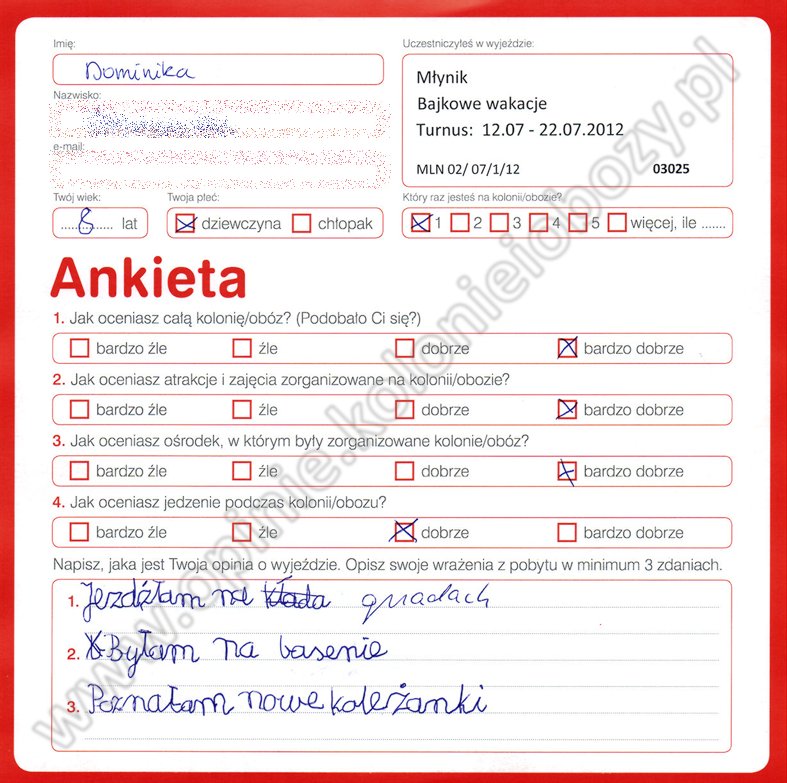 Imię:
Dominika
Uczestniczyłeś w wyjeździe:
Młynik
Bajkowe wakacje
Turnus: 12.07 - 22.07.2012
MLN 02/ 07/1/12 03025
Nazwisko:
e-mail:
Twój wiek:
8 lat
Twoja płeć:
dziewczyna chłopak
Który raz jesteś na kolonii/obozie?
1 2 3 4 5 więcej, ile .......
Ankieta
1. Jak oceniasz całą kolonię/obóz? (Podobało Ci się?)
bardzo źle źle dobrze bardzo dobrze
2. Jak oceniasz atrakcje i zajęcia zorganizowane na kolonii/obozie?
bardzo źle źle dobrze bardzo dobrze
3. Jak oceniasz ośrodek, w którym były zorganizowane kolonie/obóz?
bardzo źle źle dobrze bardzo dobrze
4. Jak oceniasz jedzenie podczas kolonii/obozu?
bardzo źle źle dobrze bardzo dobrze
Napisz, jaka jest Twoja opinia o wyjeździe. Opisz swoje wrażenia z pobytu w minimum 3 zdaniach.
1. Jezdźłam na quadach
2. Byłam na basenie
3. Poznałam nowe koleżanki
www.opinie.kolonieiobozy.pl